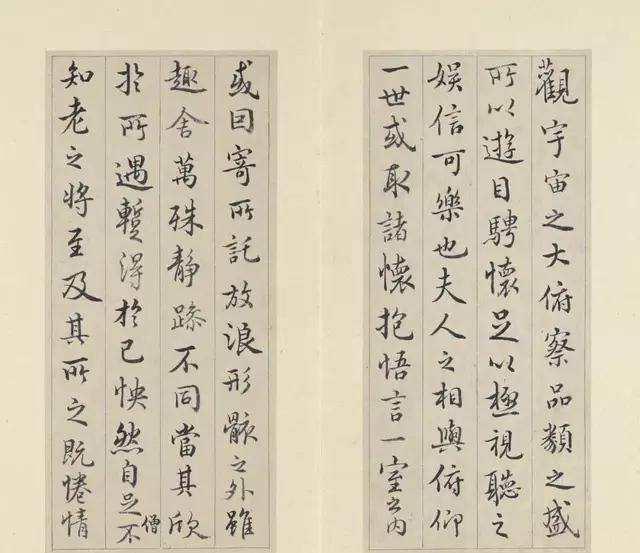 觀宇宙之大俯察品類之盛
所以遊目騁懷足以極視聽之
娛信可樂也夫人之相與俯仰
一世或取諸懷抱悟言一室之内
或因寄所託放浪形骸之外雖
趣舍萬殊靜躁不同當其欣
於所遇蹔得於己怏然自足不
僧
知老之將至及其所之既惓情